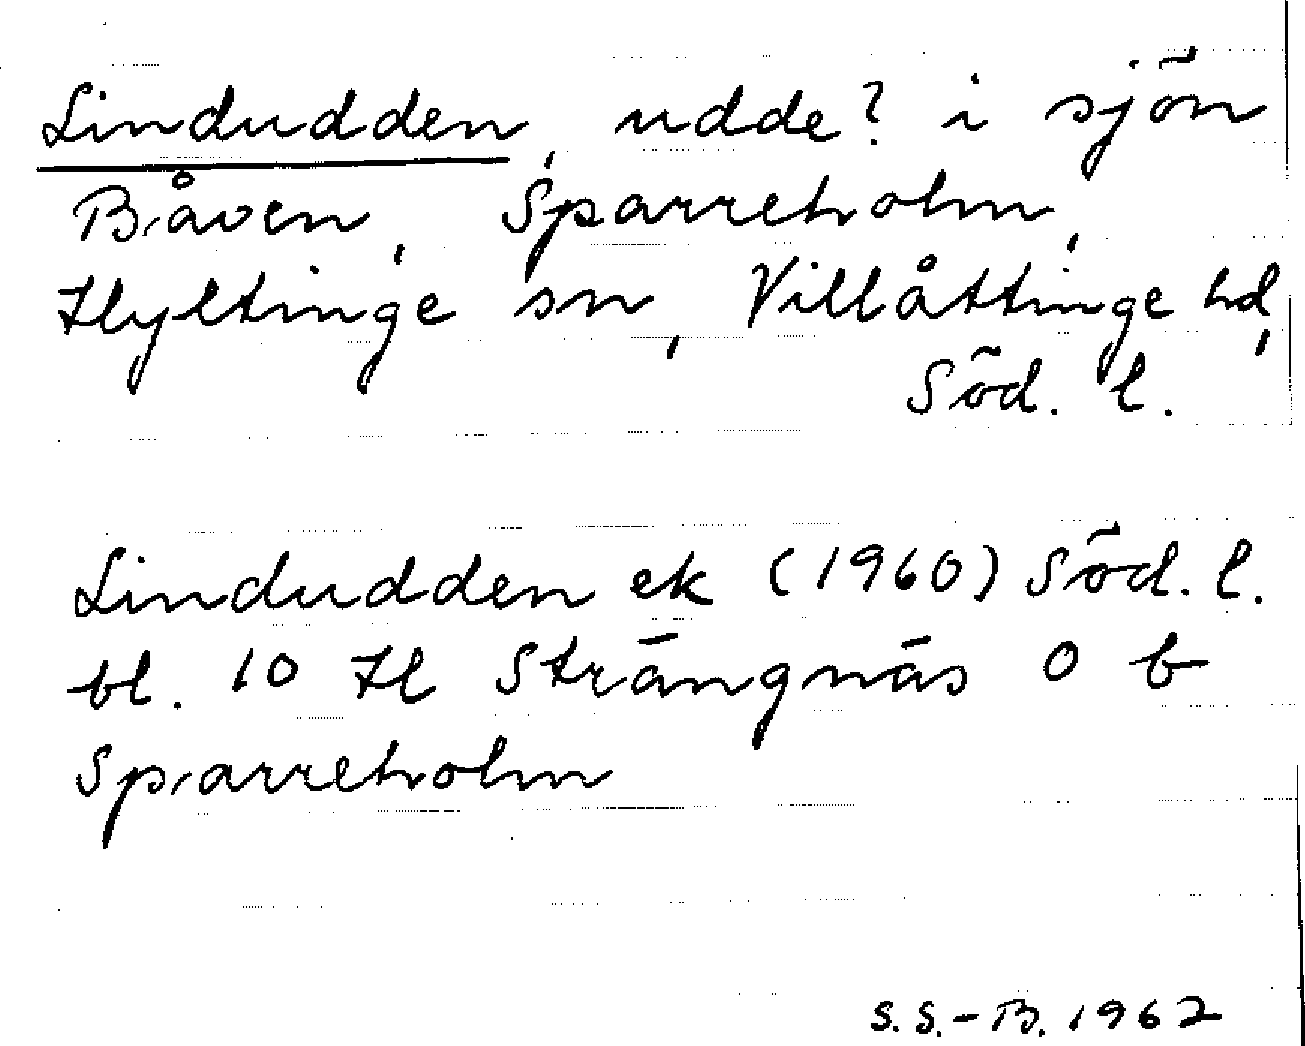 Lindudden, udde? i sjön
Båven, Sparreholm,
Hyltinge sn, Villåttinge hd,
Söd. l.
Lindudden ek (1960) Söd. l.
bl. 10 H Strängnäs O b
Sparreholm
S. S.-B. 1962